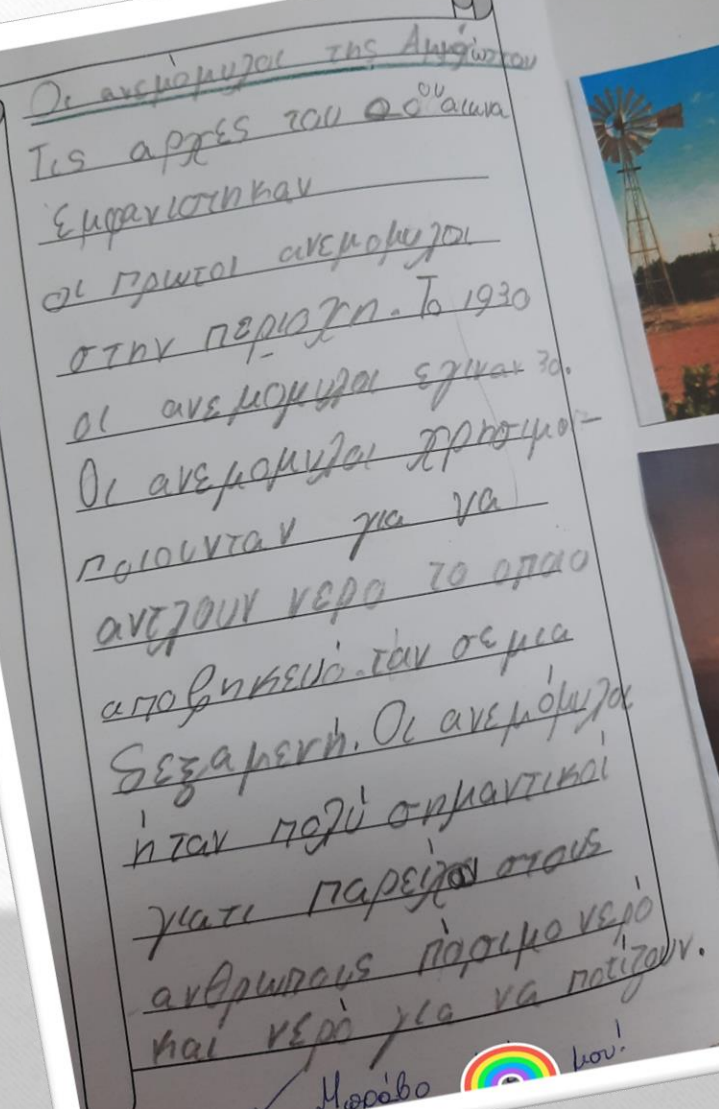 Οι ανεμόμυλοι της Αμμόχωστου
Τις αρχές του 20ου αιωνα
εμφανιστηκαν
οι πρωτοι ανεμομυλοι
στην περιοχη. Το 1930
οι ανεμόμυλοι εγιναν 30.
Οι ανεμομυλοι χρησιμο-
ποιουνταν για να
αντλουν νερο το οποιο
αποθηκευόταν σε μια
δεξαμενή. Οι ανεμόμυλοι
ήταν πολύ σημαντικοί
γιατι παρείχαν στους
ανθρωπους πόσιμο νερό
και νερό για να ποτίζουν.
Μπράβο μου!